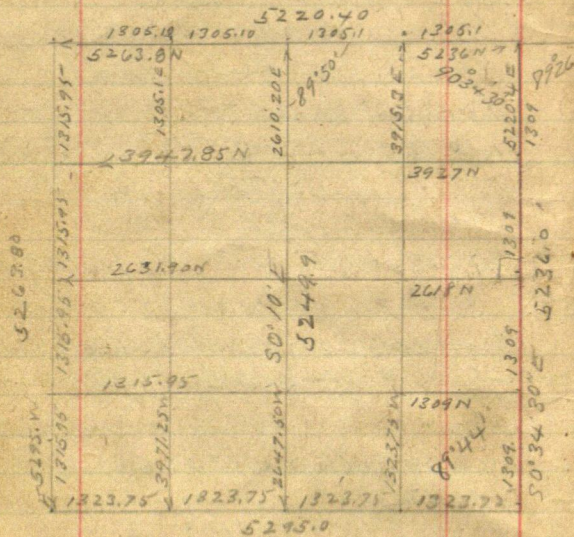 5220.40
1305.10 1305.10 1305.1 1305.1
5263.8N 5236N
90°34'30"
89°26
1315.95
1305.1E
2610.20E
89°50'
3915.3E
5220.4E
1309
3947.85N 3927N
1315.95
1309
5263.80
2631.90N 2618N
5236.0
1315.95
S0°10'E
5249.9
1309
S0°34'30"E
1315.95 1309N
5295.W
1315.95
3971.25W
2647.50W
1323.75W
89°44'
1309.
1323.75 1323.75 1323.75 1323.75
5295.0